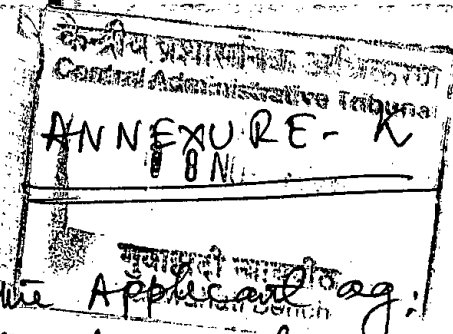 केन्द्रीय प्रशासनिक अधिकरण
Central Administrative Tribunal
ANNEXURE-K
8 N
गुवाहाटी न्यायपीठ
Applicant ag:
Bench